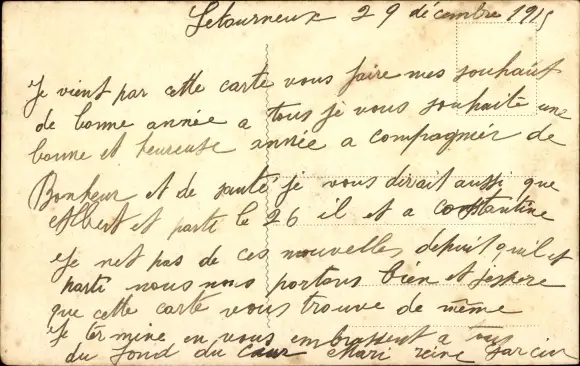 Letourneux 29 décembre 1915
Je vient par cette carte vous faire mes souhait
de bonne année a tous je vous souhaite une
bonne et heureuse année a compagnier de
Bonheur et de santé je vous dirait aussi que
Albert et parti le 26 il et a costantine
Je net pas de ces nouvelles depuit qu'il et
parti nous nous portons bien et j'espere
que cette carte vous trouve de même
Je termine en vous embrassent a tous
du fond du cœur Mari reine Garcin